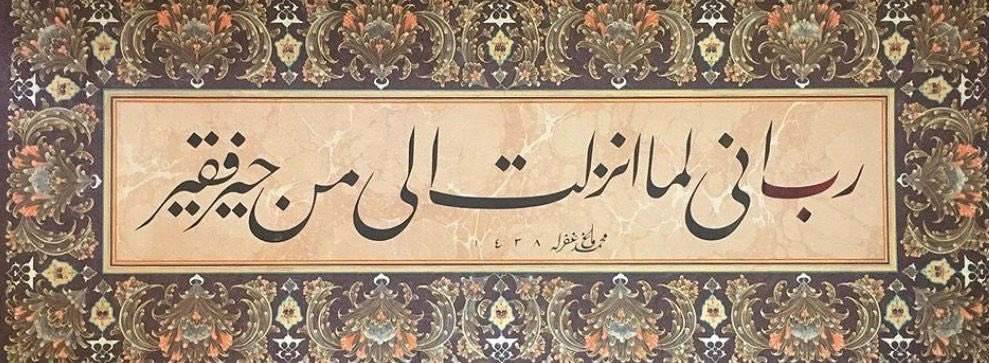 رب انى لما انزلت الى من خير فقير
محمد غفرله ١٤٣٨